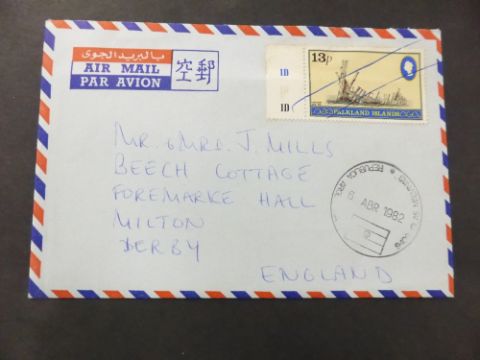 بالبريد الجوى
AIR MAIL
PAR AVION
空郵
1D
1D
13p
FALKLAND ISLANDS
MR. & MRS. J. MILLS
BEECH COTTAGE
FOREMARKE HALL
MILTON
DERBY
ENGLAND
REPUBLICA
8 ABR 1982